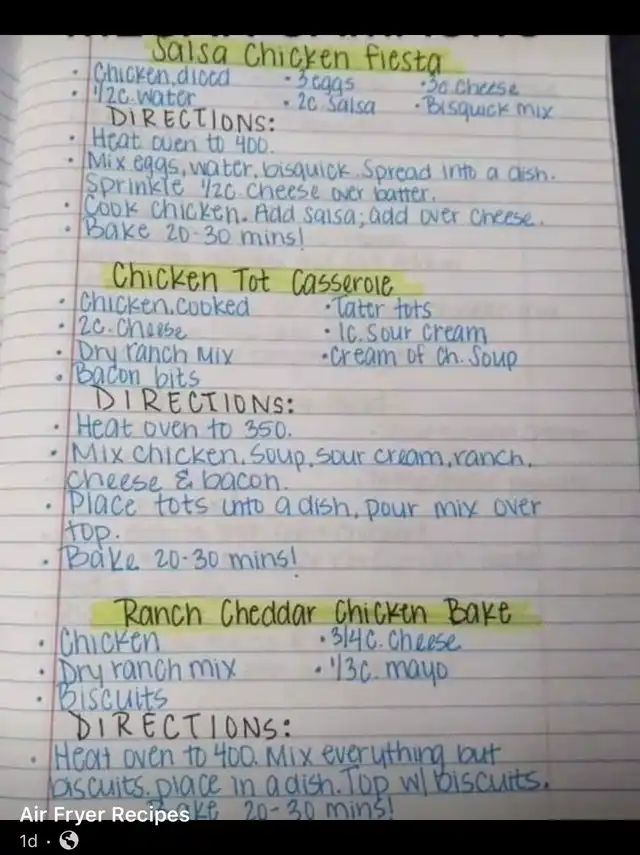 Salsa Chicken Fiesta
• Chicken, diced • 3 eggs • 3c cheese
• 1/2c. water • 2c Salsa • Bisquick mix
DIRECTIONS:
• Heat oven to 400.
• Mix eggs, water, bisquick. Spread into a dish.
Sprinkle 1/2c. cheese over batter.
• Cook chicken. Add salsa; add over cheese.
• Bake 20-30 mins!
Chicken Tot Casserole
• Chicken, cooked • Tater tots
• 2c. Cheese • 1c. Sour cream
• Dry ranch mix • Cream of Ch. Soup
• Bacon bits
DIRECTIONS:
• Heat oven to 350.
• Mix chicken, Soup, sour cream, ranch,
cheese & bacon.
• Place tots into a dish, pour mix over
top.
• Bake 20-30 mins!
Ranch Cheddar Chicken Bake
• Chicken • 3/4c. cheese
• Dry ranch mix • 1/3c. mayo
• Biscuits
DIRECTIONS:
• Heat oven to 400. Mix everything but
biscuits. place in a dish. Top w/ biscuits.
Bake 20-30 mins!
Air Fryer Recipes
1d ·